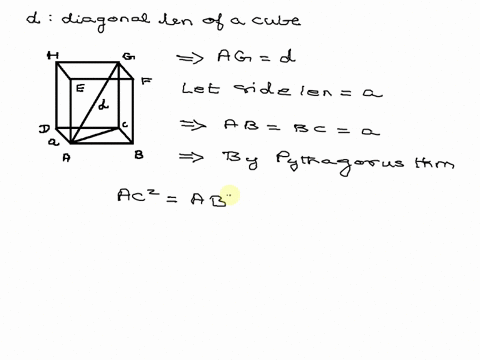 d : diagonal len of a cube
H G
E F
d
D C
a
A B
=> AG = d
Let side len = a
=> AB = BC = a
=> By Pythagorus thm
AC² = AB